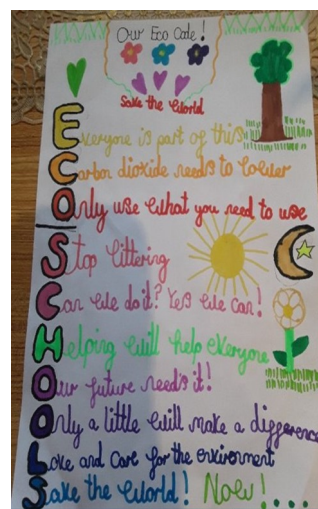 Our Eco Code!
Save the World
Everyone is part of this
Carbon dioxide needs to lower
Only use what you need to use
Stop littering
Can we do it? Yes we can!
Helping will help everyone
Our future needs it!
Only a little will make a difference
Love and Care for the enviroment
Save the World! Now!....